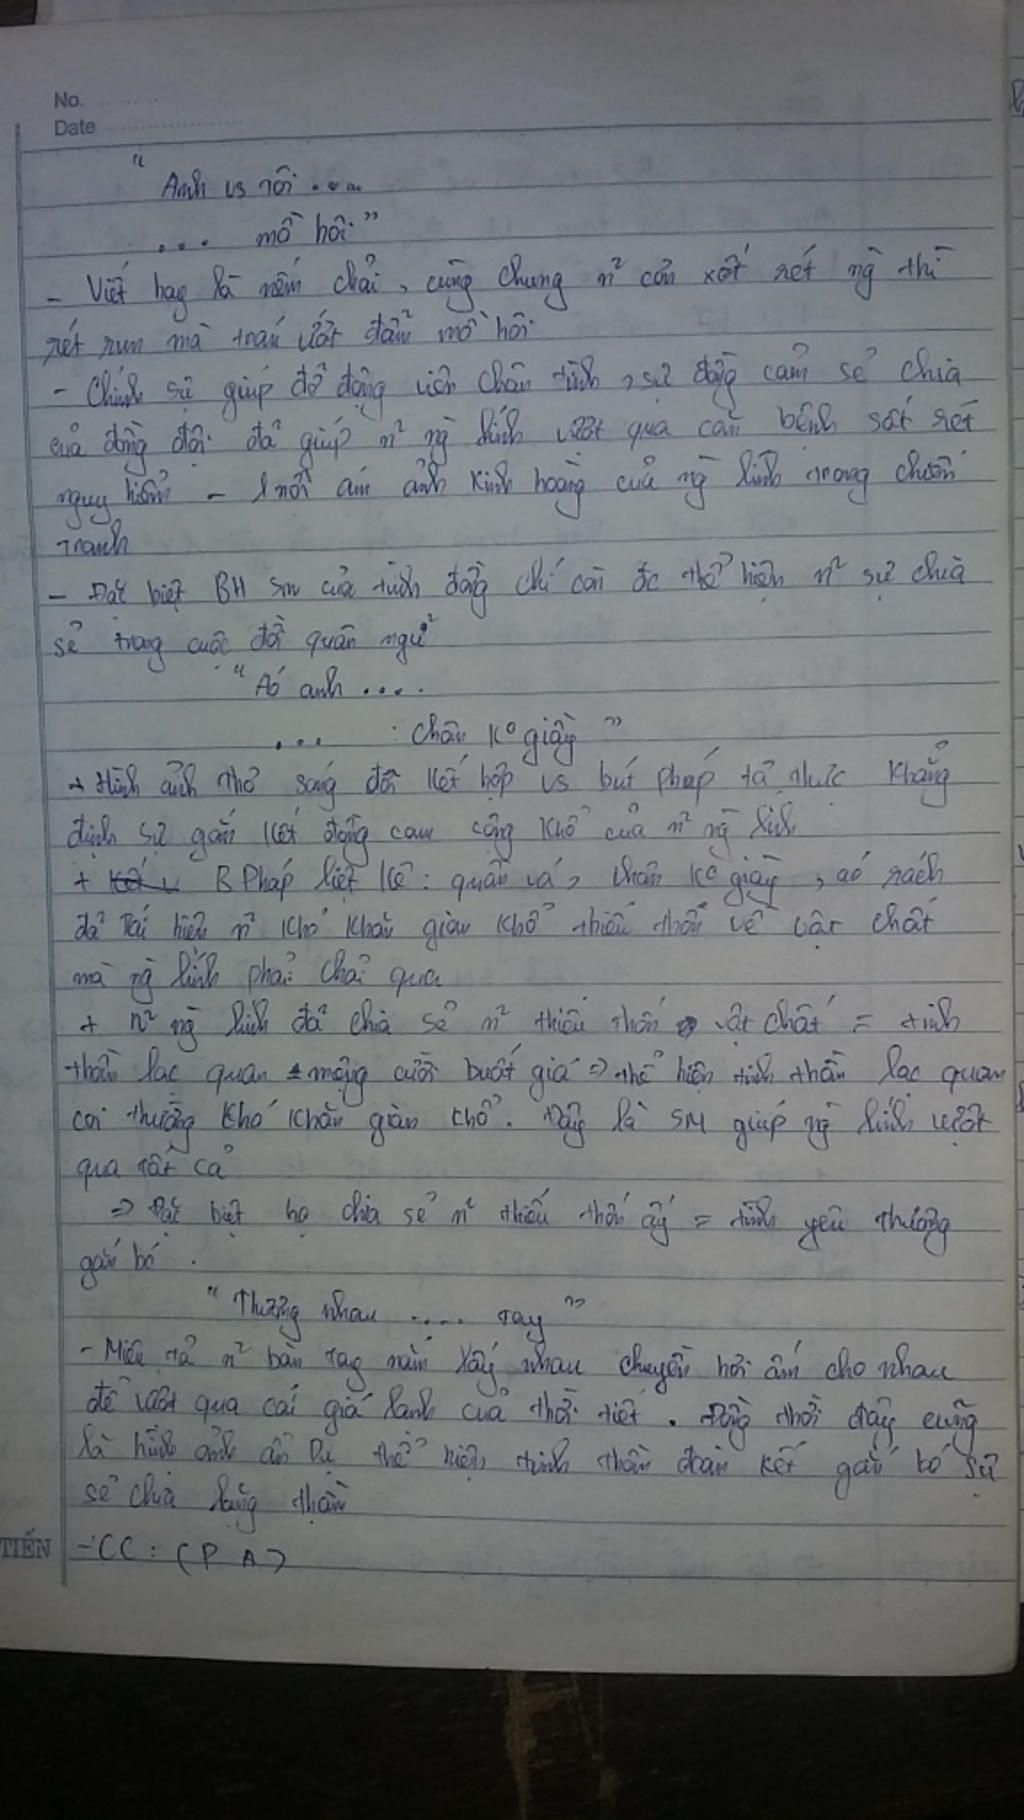 No. ............
Date ....................
" Anh vs tôi ....
... mồ hôi "
- Viết hay là nếm chải, cùng chung n² cơn xốt rét ng thì
rét run mà trán ướt đẫm mồ hôi
- Chính sự giúp đỡ động viên chân tình, sự đồng cảm sẻ chia
của đồng đội đã giúp n² ng lính vượt qua căn bệnh sốt rét
nguy hiểm - 1 nỗi ám ảnh kinh hoàng của ng lính trong chiến
tranh
- Đặc biệt BH sm của tình đồng chí còn đc thể hiện n² sự chia
sẻ trong cuộc đời quân ngũ
" Áo anh ....
... chân ko giầy "
+ Hình ảnh thơ sóng đôi kết hợp vs bút pháp tả thực khẳng
định sự gắn kết đồng cam cộng khổ của n² ng lính
+ B Pháp liệt kê : quần vá, chân ko giầy, áo rách
đã tái hiện n² khó khăn gian khổ thiếu thốn về vật chất
mà ng lính phải chải qua
+ n² ng lính đã chia sẻ n² thiếu thốn vật chất = tinh
thần lạc quan miệng cười buốt giá => thể hiện tinh thần lạc quan
coi thường khó khăn gian khổ. Đây là SM giúp ng lính vượt
qua tất cả
=> Đặc biệt họ chia sẻ n² thiếu thốn ấy = tình yêu thương
gắn bó .
" Thương nhau .... tay "
- Miêu tả n² bàn tay nắm lấy nhau chuyền hơi ấm cho nhau
để vượt qua cái giá lạnh của thời tiết . Đồng thời đây cũng
là hình ảnh ẩn dụ thể hiện tinh thần đoàn kết gắn bó sự
sẻ chia lặng thầm
TIẾN
- CC : (P A)